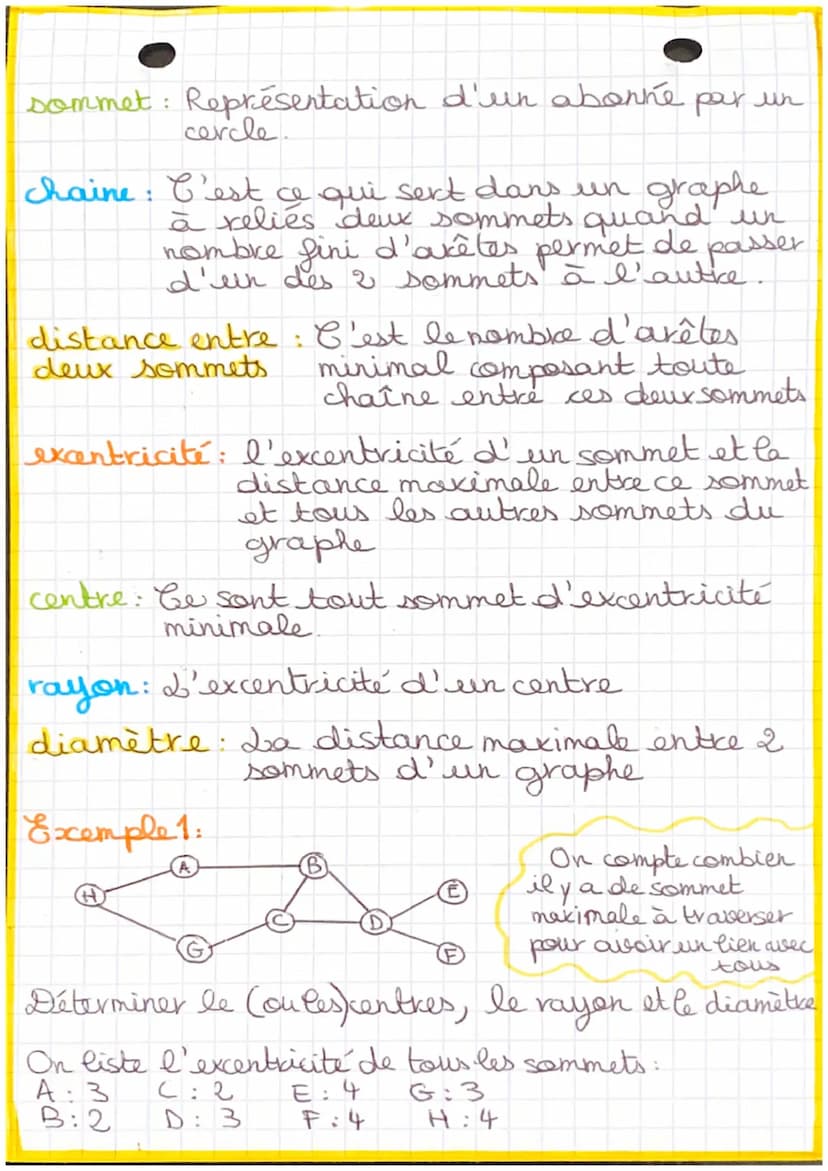 sommet : Représentation d'un abonné par un
cercle.
chaine : C'est ce qui sert dans un graphe
à reliés deux sommets quand un
nombre fini d'arêtes permet de passer
d'un des 2 sommets à l'autre.
distance entre : C'est le nombre d'arêtes
deux sommets minimal composant toute
chaîne entre ces deux sommets
exantricité : l'excentricité d'un sommet et la
distance maximale entre ce sommet
et tous les autres sommets du
graphe
centre : Ce sont tout sommet d'excentricité
minimale.
rayon : L'excentricité d'un centre
diamètre : La distance maximale entre 2
sommets d'un graphe
Exemple 1:
A B
H E
C D
G F
On compte combien
il y a de sommet
maximale à traverser
pour avoir un lien avec
tous
Déterminer le (ou les) centres, le rayon et le diamètre
On liste l'excentricité de tous les sommets :
A : 3 C : 2 E : 4 G : 3
B : 2 D : 3 F : 4 H : 4